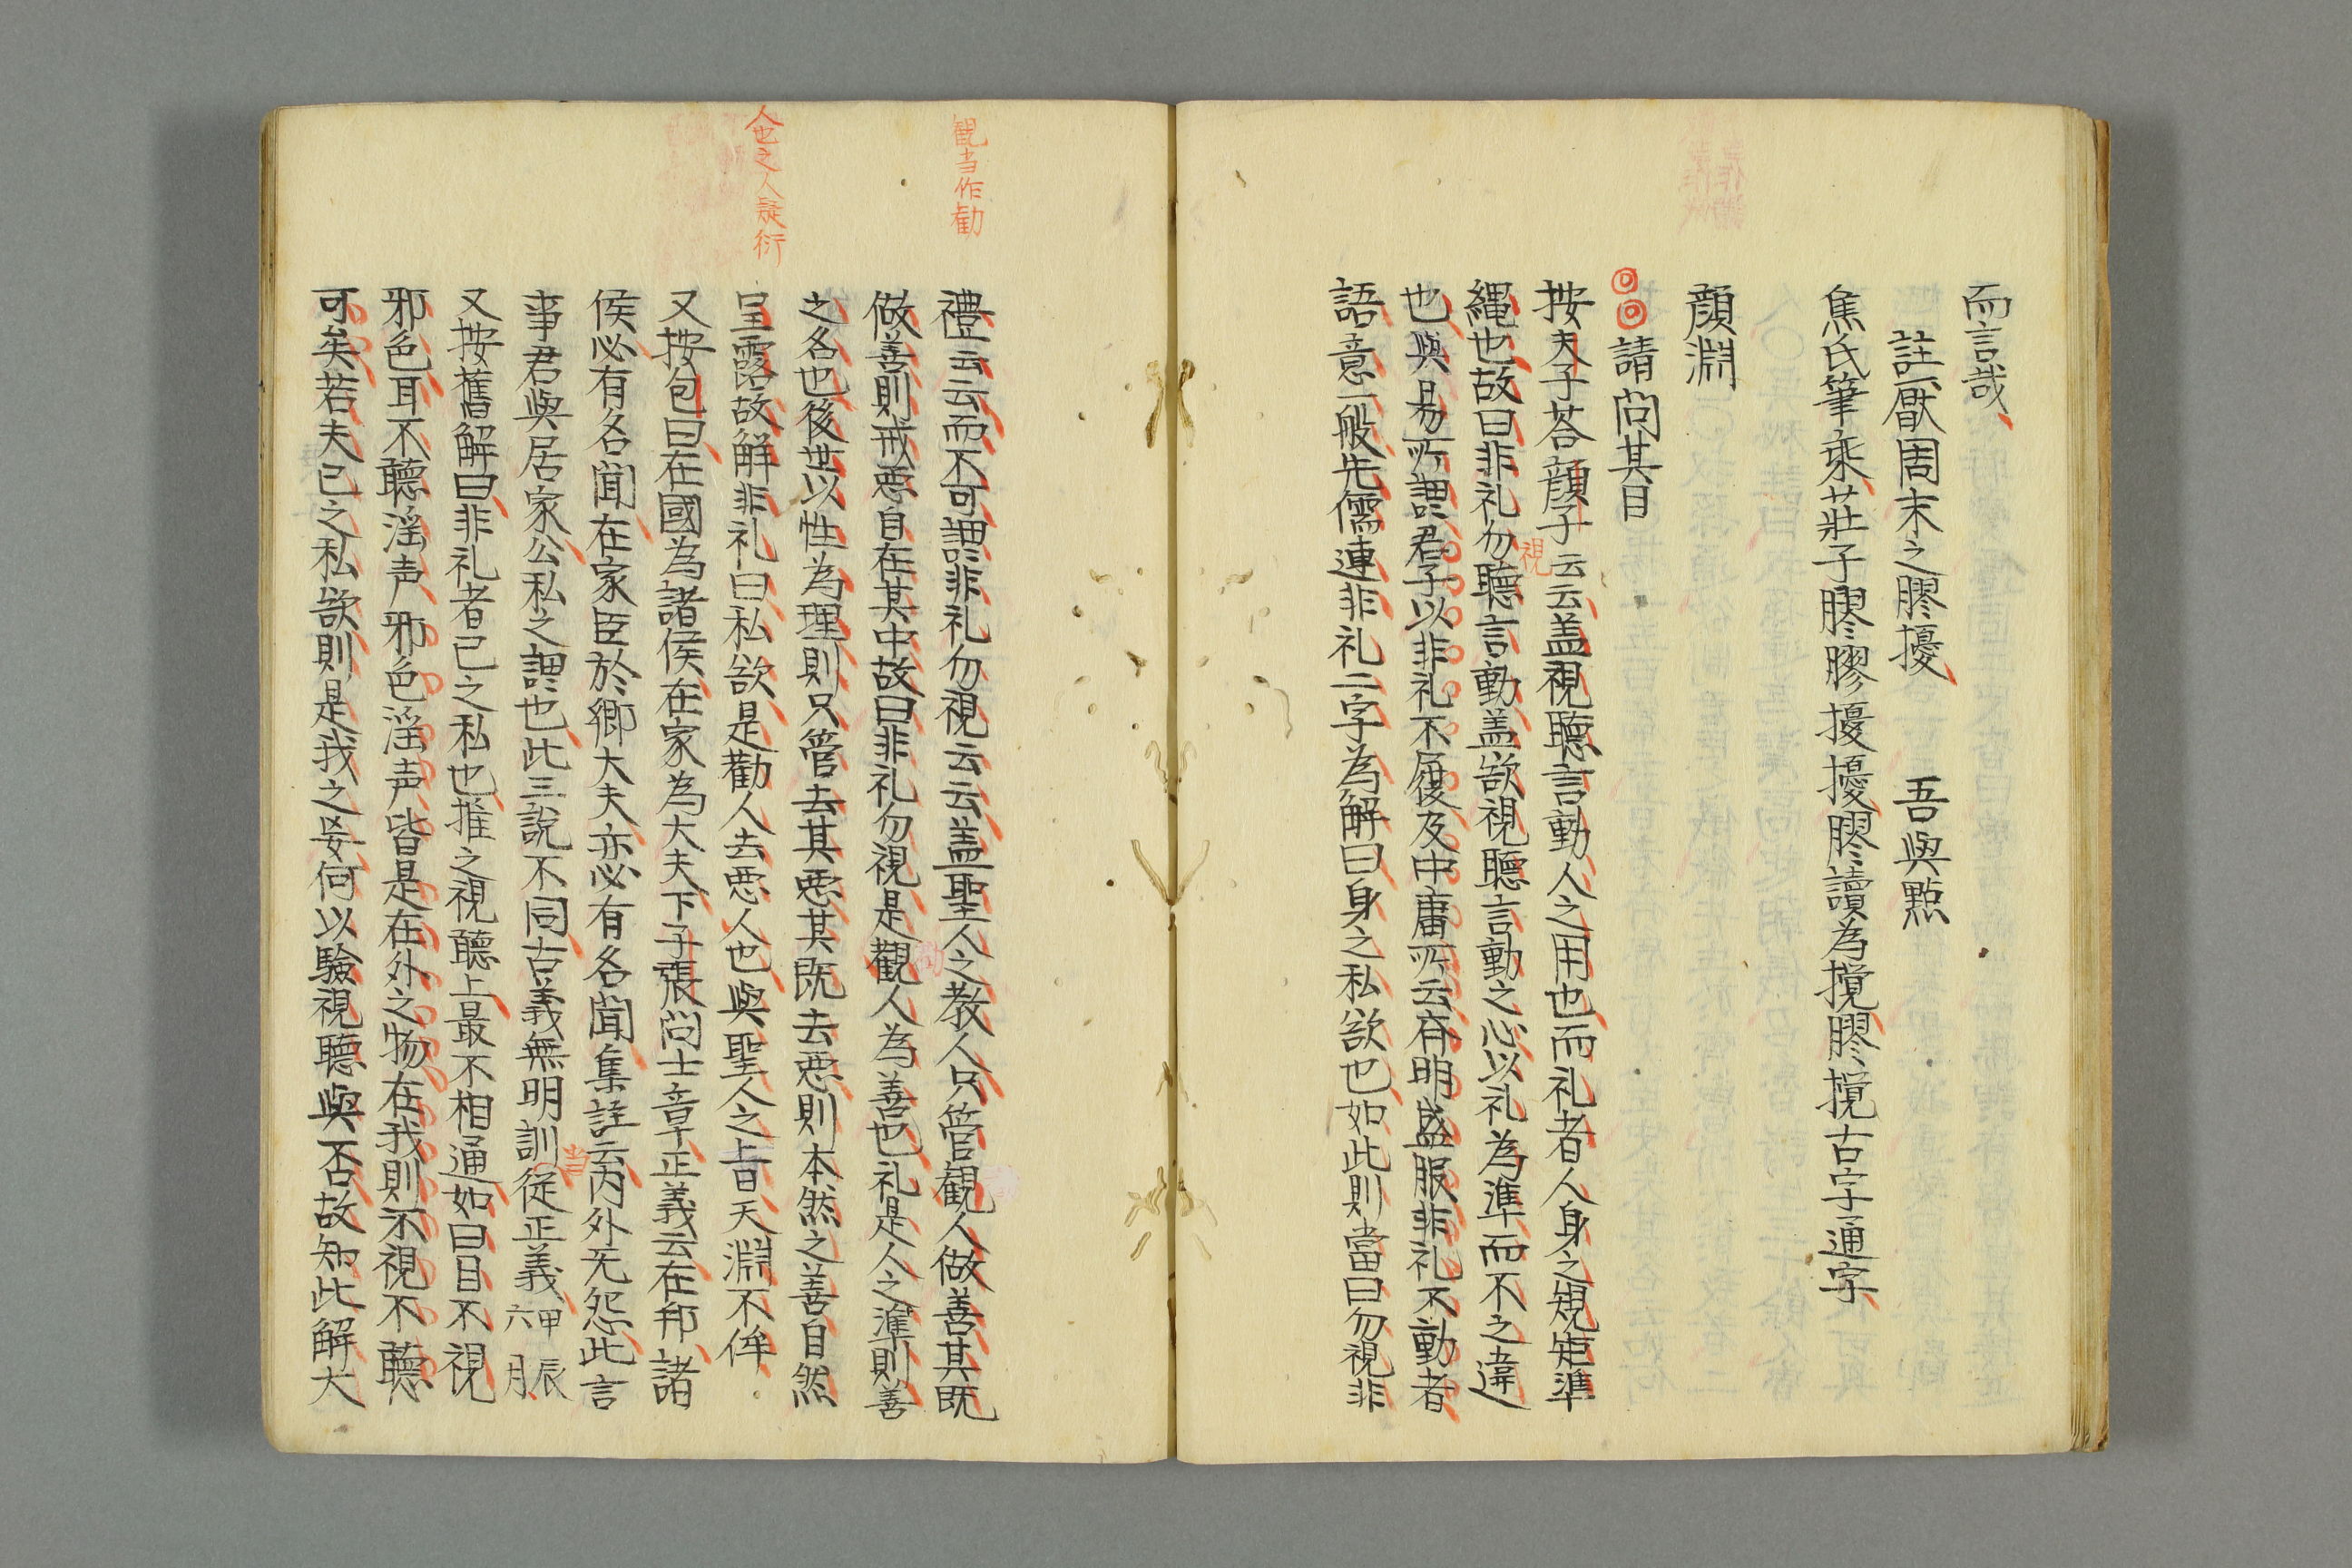 而言哉
註厭周末之膠擾　吾與點
焦氏筆乘莊子膠膠擾擾膠讀為攪膠攪古字通字
顔淵
◎◎請問其目
按夫子荅顔子云云盖視聽言動人之用也而礼者人身之規矩準
繩也故曰非礼勿視聽言動盖欲視聽言動之心以礼為準而不之違
也與易所謂君子以非礼不履及中庸所云斉明盛服非礼不動者
語意一般先儒連非礼二字為解曰身之私欲也如此則當曰勿視非
観当作勧
人也之人疑衍
禮云云而不可謂非礼勿視云云盖聖人之教人只管観人做善其既
做善則戒悪自在其中故曰非礼勿視是觀人為善也礼是人之準則善
之名也後世以性為理則只管去其悪其既去悪則本然之善自然
呈露故解非礼曰私欲是勸人去悪人也與聖人之上旨天淵不侔
又按包曰在國為諸侯在家為大夫下子張問士章正義云在邦諸
侯必有名聞在家臣於卿大夫亦必有名聞集註云内外无怨此言
事君與居家公私之謂也此三說不同古義無明訓当従正義甲辰六月
又按舊解曰非礼者己之私也推之視聽上最不相通如曰目不視
邪色耳不聽淫声邪色淫声皆是在外之物在我則不視不聽
可矣若夫己之私欲則是我之妄何以驗視聽與否故知此解大